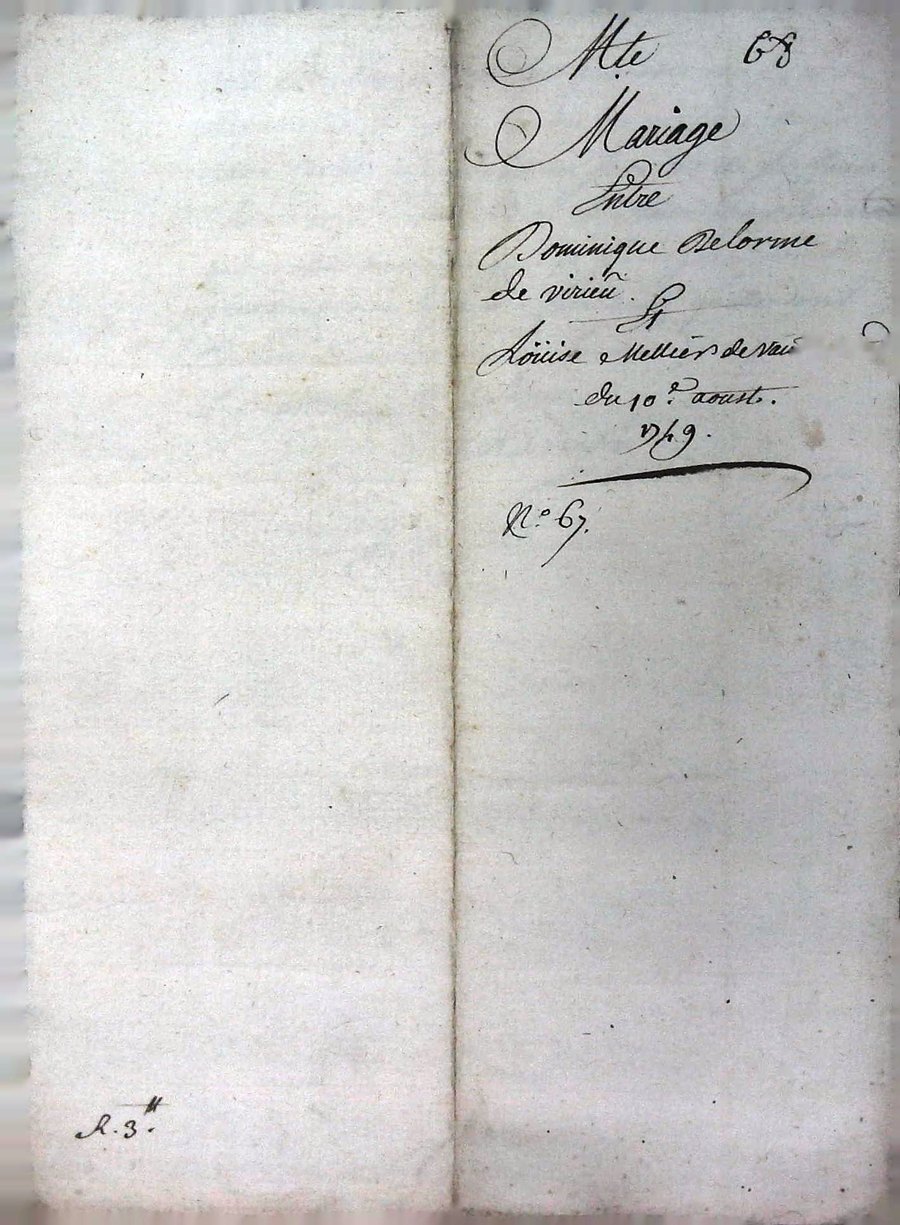 Mte 68
Mariage
Entre
Dominique Delorme
de virieü.
Et
Loüise Mellier de vaü
du 10e. aoust.
1749.
No. 67.
R. 3ᵗᵗ.